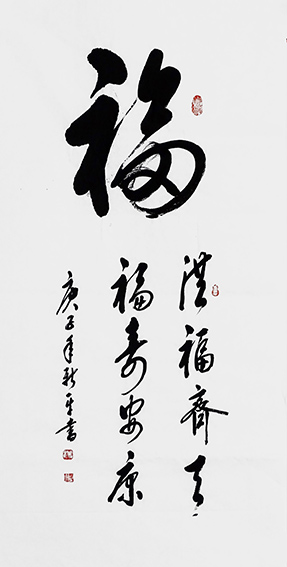 福
洪福齐天
福寿安康
庚子年新平书